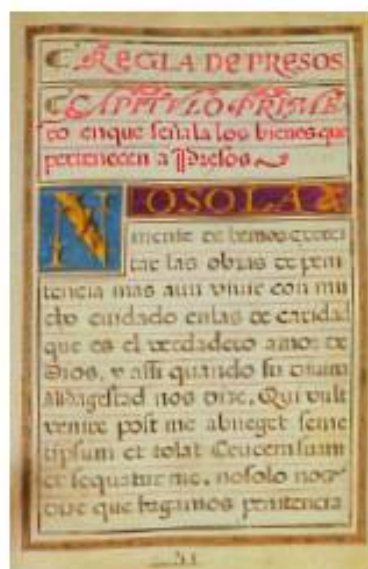 REGLA DE PRESOS
CAPITVLO PRIME
ro en que señala los bienes que
pertenecen a Presos
NOSOLA
mente debemos exerci
tar las obras de peni
tencia mas aun viuir con mu
cho cuidado en las de caridad
que es el verdadero amor de
Dios, y assi quando su diuina
Magestad nos dize, Qui vult
venire post me abneget seme
tipsum et tolat Crucem suam
et sequatur me, no solo nos
dize que hagamos penitencia